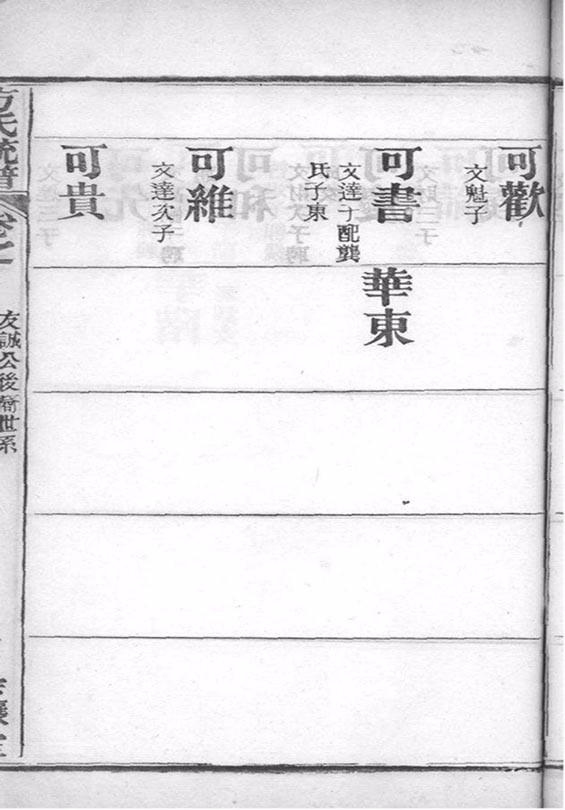 可歡
文魁子
可書
文達子配龔
氏子東
華東
可維
文達次子
可貴
方氏統譜
卷之一
友誠公後裔世系